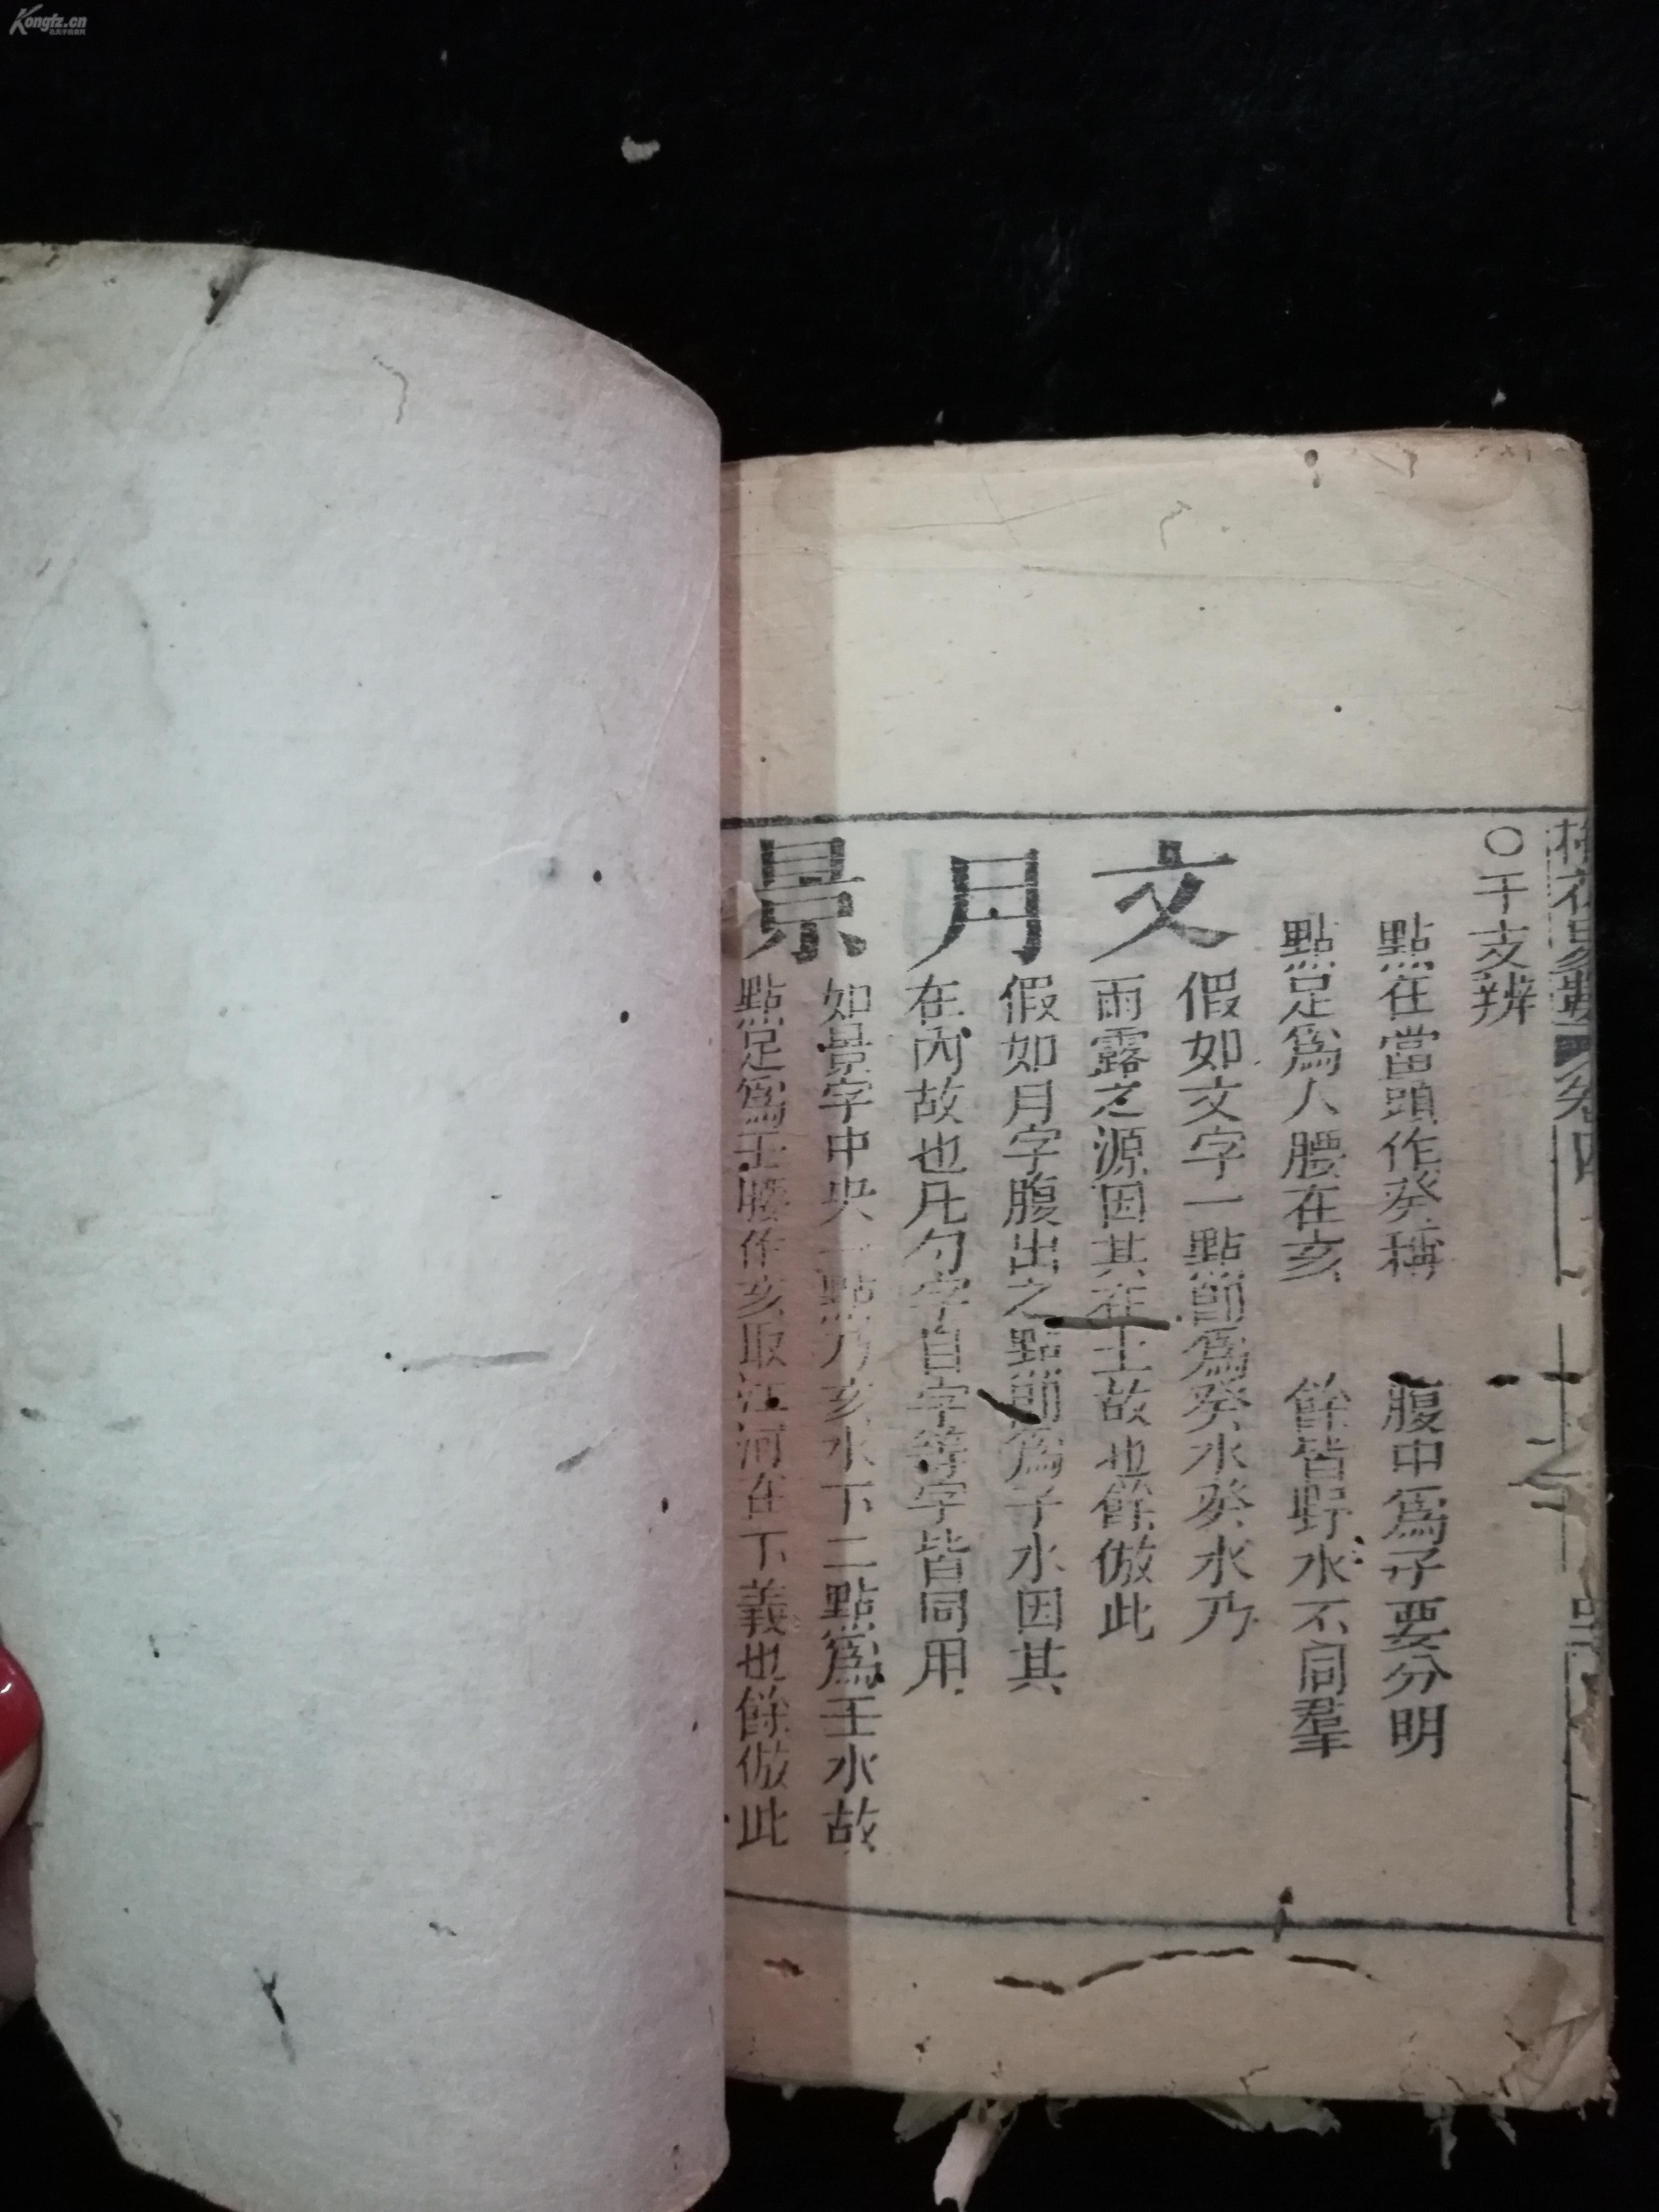 Kongfz.cn
孔夫子旧书网
梅花易數 卷四
○干支辨
點在當頭作癸稱 腹中爲子要分明
點足爲人腰在亥 餘皆野水不同羣
文 假如文字一點卽爲癸水癸水乃
雨露之源因其在上故也餘倣此
月 假如月字腹出之點卽爲子水因其
在內故也凡勹字自字等字皆同用
景 如景字中央一點乃亥水下二點爲壬水故
點足爲壬腰作亥取江河在下義也餘倣此